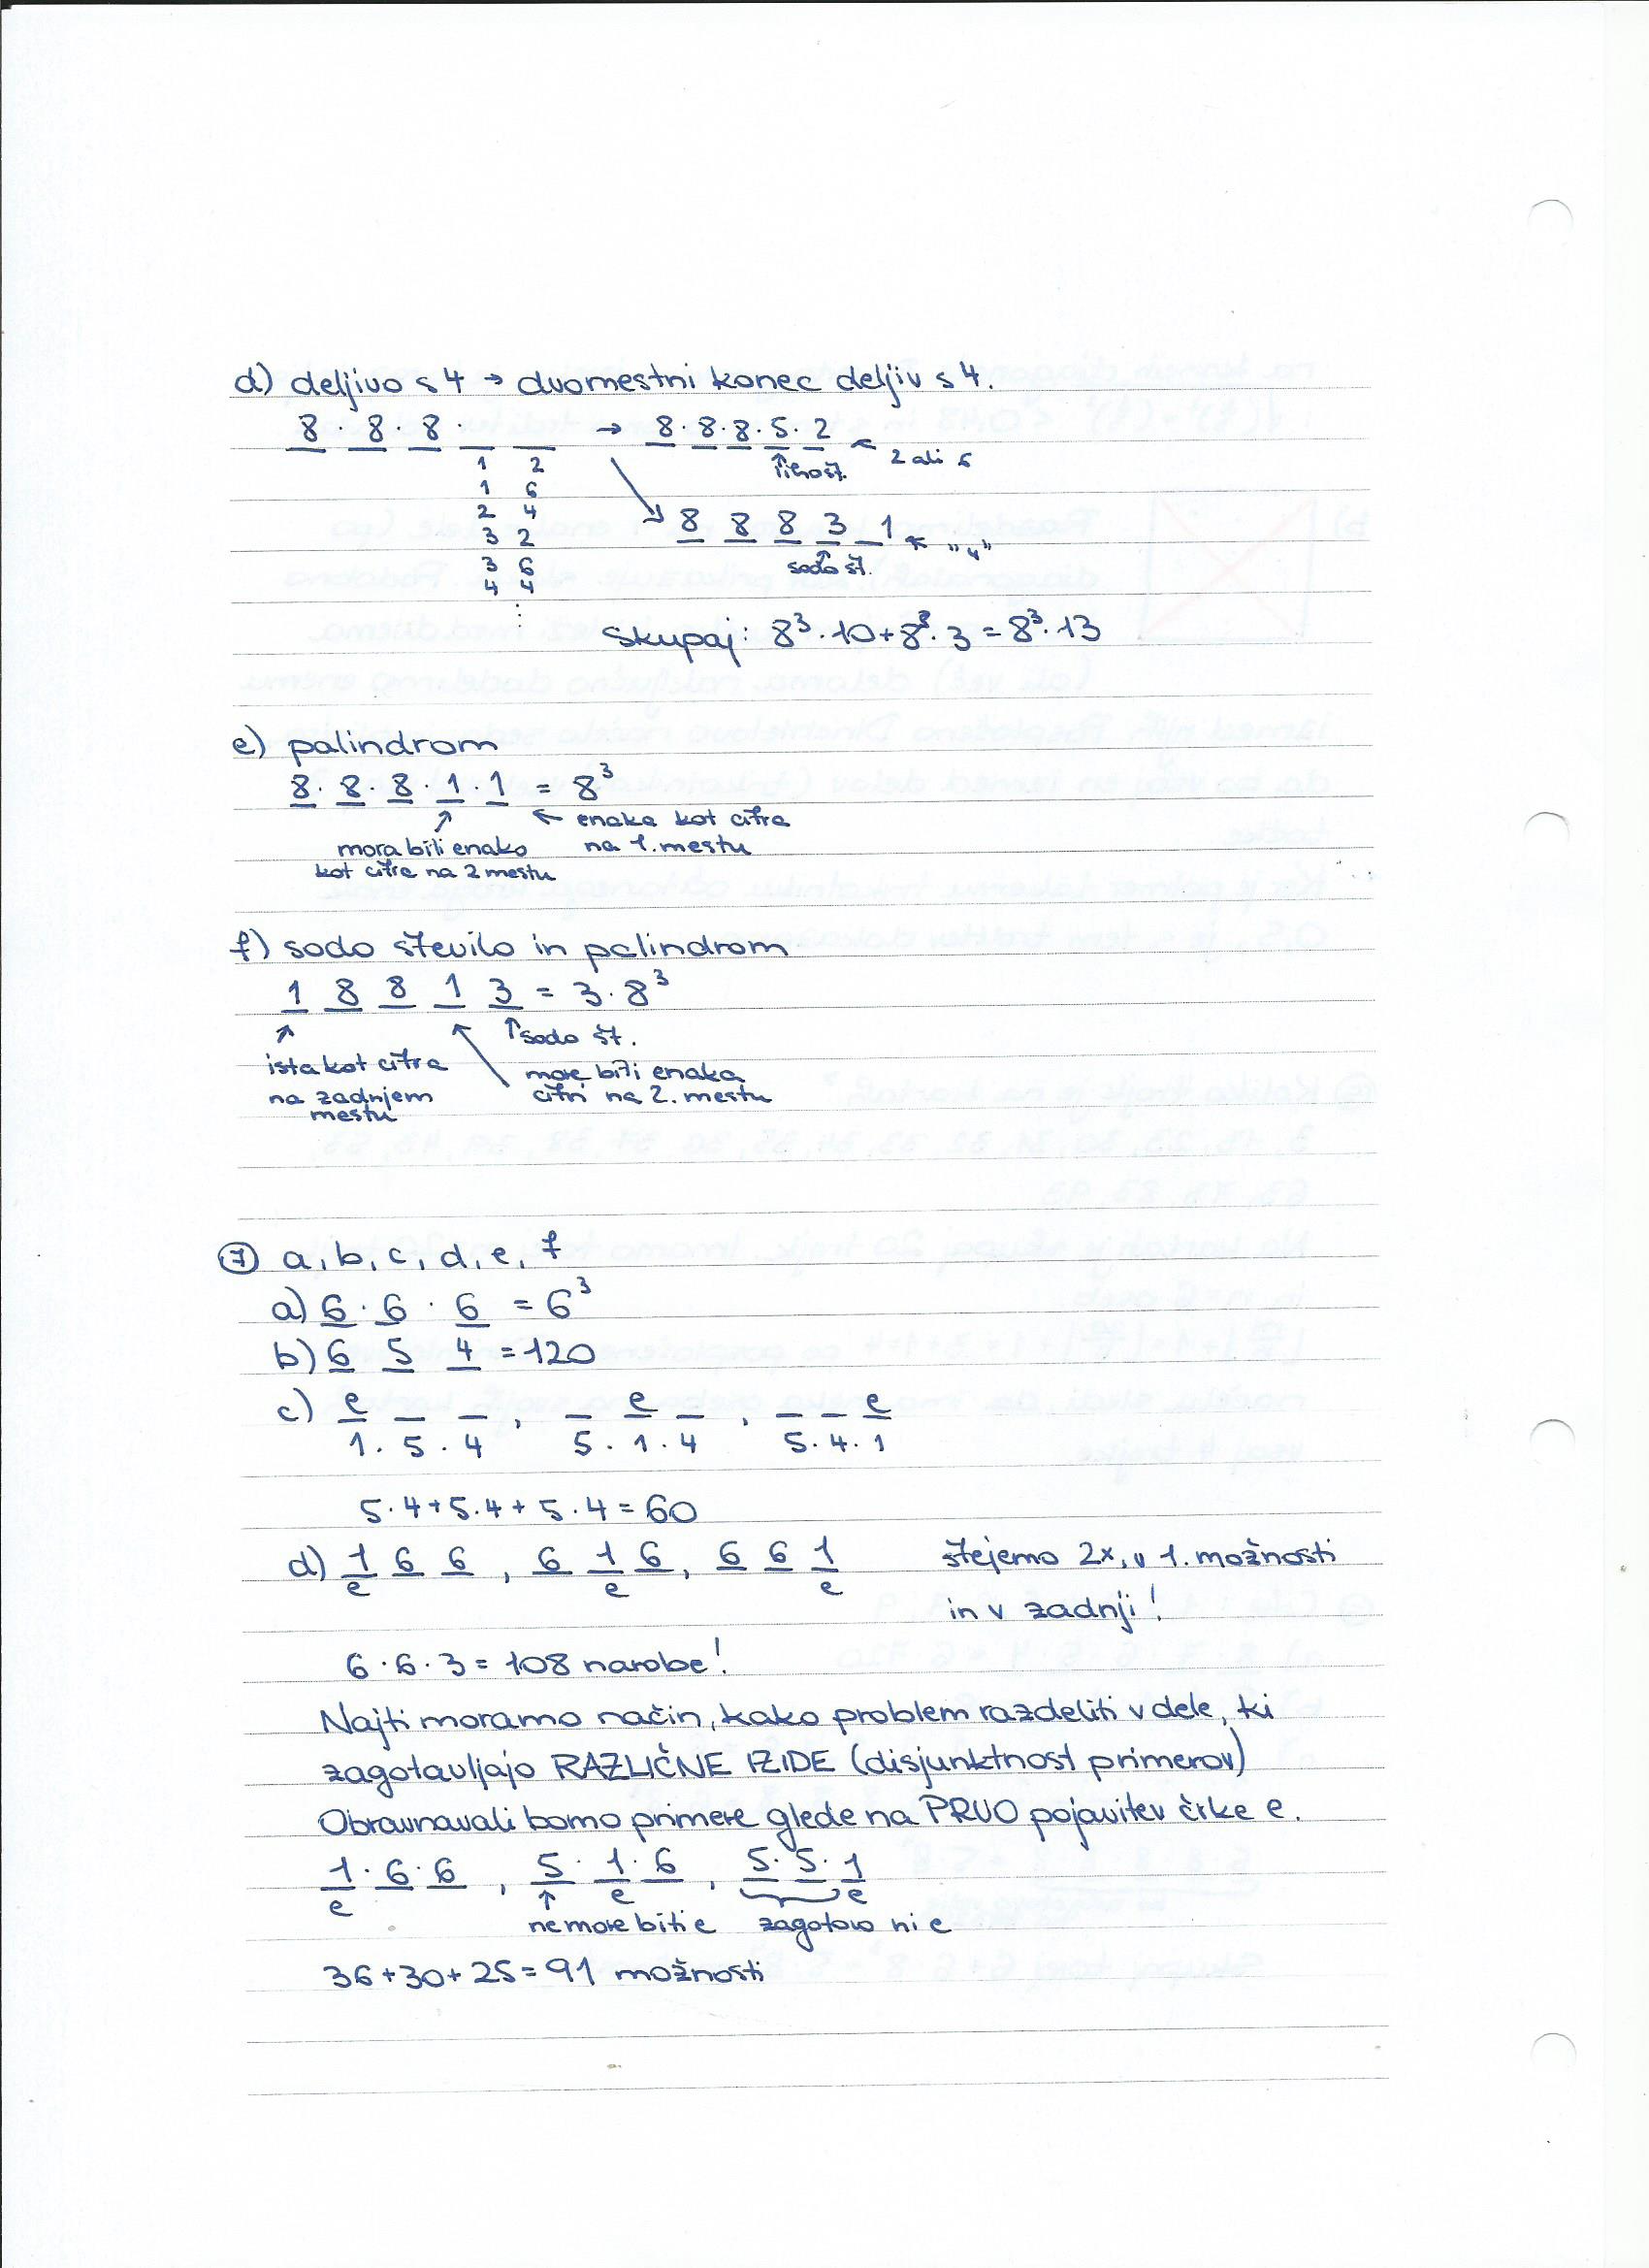 d) deljivo s 4 → dvomestni konec deljiv s 4.
8 8 · 8 · _ _ → 8 · 8 · 8 · 5 · 2 ← 2 ali 6
liho št.
1 2
1 6
2 4
3 2
3 6
4 4
⋮
8 8 8 3 1 ← "4"
sodo št.
Skupaj: 8³ · 10 + 8³ · 3 = 8³ · 13
e) palindrom
8 · 8 · 8 · 1 · 1 = 8³
← enaka kot cifra
na 1. mestu
mora biti enako
kot cifra na 2 mestu
f) sodo število in palindrom
1 8 8 1 3 = 3 · 8³
↑ sodo št.
ista kot cifra
na zadnjem
mestu
more biti enaka
cifri na 2. mestu
⑦ a, b, c, d, e, f
a) 6 · 6 · 6 = 6³
b) 6 5 4 = 120
c) e _ _ , _ e _ , _ _ e
1 · 5 · 4 5 · 1 · 4 5 · 4 · 1
5 · 4 + 5 · 4 + 5 · 4 = 60
d) 1 6 6 , 6 1 6 , 6 6 1 štejemo 2x, v 1. možnosti
e e e
in v zadnji!
6 · 6 · 3 = 108 narobe!
Najti moramo način, kako problem razdeliti v dele, ki
zagotavljajo RAZLIČNE IZIDE (disjunktnost primerov)
Obravnavali bomo primere glede na PRVO pojavitev črke e.
1 · 6 · 6 , 5 · 1 · 6 , 5 · 5 · 1
e ↑ e e
ne more biti e zagotovo ni e
36 + 30 + 25 = 91 možnosti